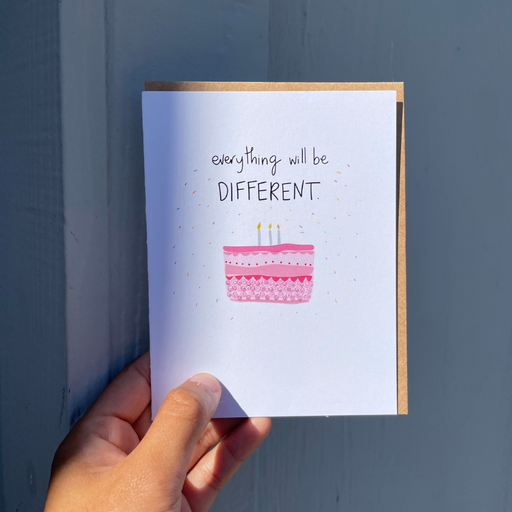 everything will be
DIFFERENT.